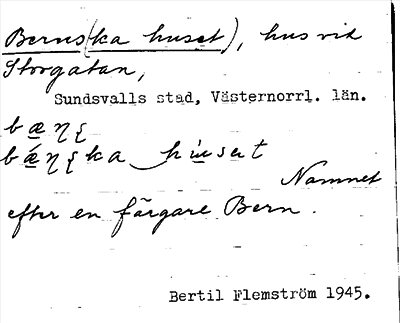 Berns(ka huset), hus vid
Storgatan,
Sundsvalls stad, Västernorrl. län.
Namnet
efter en färgare Bern.
Bertil Flemström 1945.